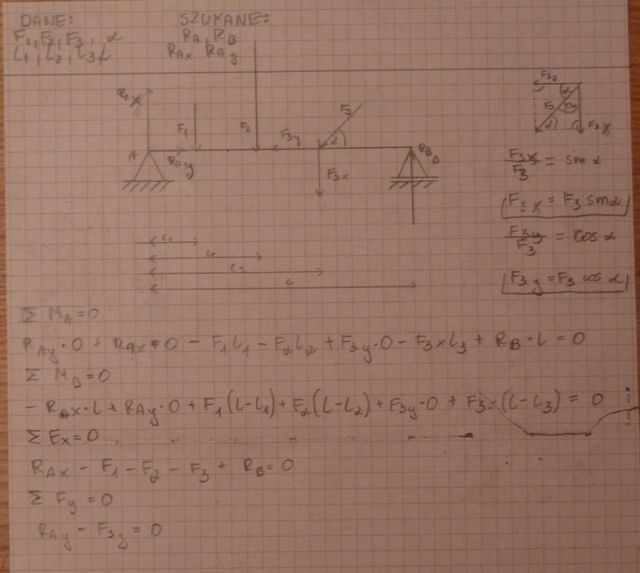 DANE: SZUKANE:
F1, F2, F3, α RA, RB
L1, L2, L3, L RAx RAy
RAx
F1
F2
F3y
F3
α
A
RAy
F3x
RB
B
L1
L
F3
α
F3x
F3x/F3 = sin α
F3x = F3 sin α
F3y/F3 = cos α
F3y = F3 cos α
Σ MA = 0
RAy · 0 + RAx · 0 − F1L1 − F2L2 + F3y · 0 − F3xL3 + RB · L = 0
Σ MB = 0
− RAx · L + RAy · 0 + F1(L−L1) + F2(L−L2) + F3y · 0 + F3x(L−L3) = 0
Σ Fx = 0
RAx − F1 − F2 − F3 + RB = 0
Σ Fy = 0
RAy − F3y = 0